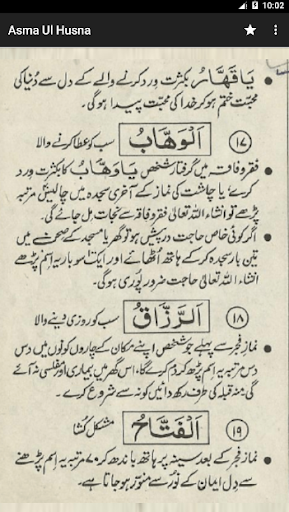 10:02
Asma Ul Husna
یَا قَهَّارُ بکثرت ورد کرنے والے کے دل سے دُنیا کی
محبّت ختم ہو کر خدا کی محبّت پیدا ہوگی۔
۱۷ اَلْوَهَّابُ سب کو عطا کرنے والا
فقر و فاقہ میں گرفتار شخص یَا وَهَّابُ کا بکثرت ورد
کرے یا چاشت کی نماز کے آخری سجدہ میں چالیس مرتبہ
پڑھے تو انشاء اللہ تعالیٰ فقر و فاقہ سے نجات مل جائے گی۔
اگر کوئی خاص حاجت درپیش ہو تو گھر یا مسجد کے صحن میں
تین بار سجدہ کر کے ہاتھ اُٹھائے اور ایک سو بار یہ اِسم پڑھے
انشاء اللہ تعالیٰ حاجت ضرور پوری ہوگی۔
۱۸ اَلرَّزَّاقُ سب کو روزی دینے والا
نمازِ فجر سے پہلے جو شخص اپنے مکان کے چاروں کونوں میں دس
دس مرتبہ یہ اِسم پڑھ کر دم کرے گا اس گھر میں بیماری اور مفلسی نہ آئے
گی منہ قبلہ کی طرف رکھے دائیں کونے سے شروع کرے۔
۱۹ اَلْفَتَّاحُ مشکل کُشا
نماز فجر کے بعد سینہ پر ہاتھ باندھ کر ۷۰ مرتبہ یہ اِسم پڑھنے
سے دِل ایمان کے نُور سے منوّر ہو جاتا ہے۔